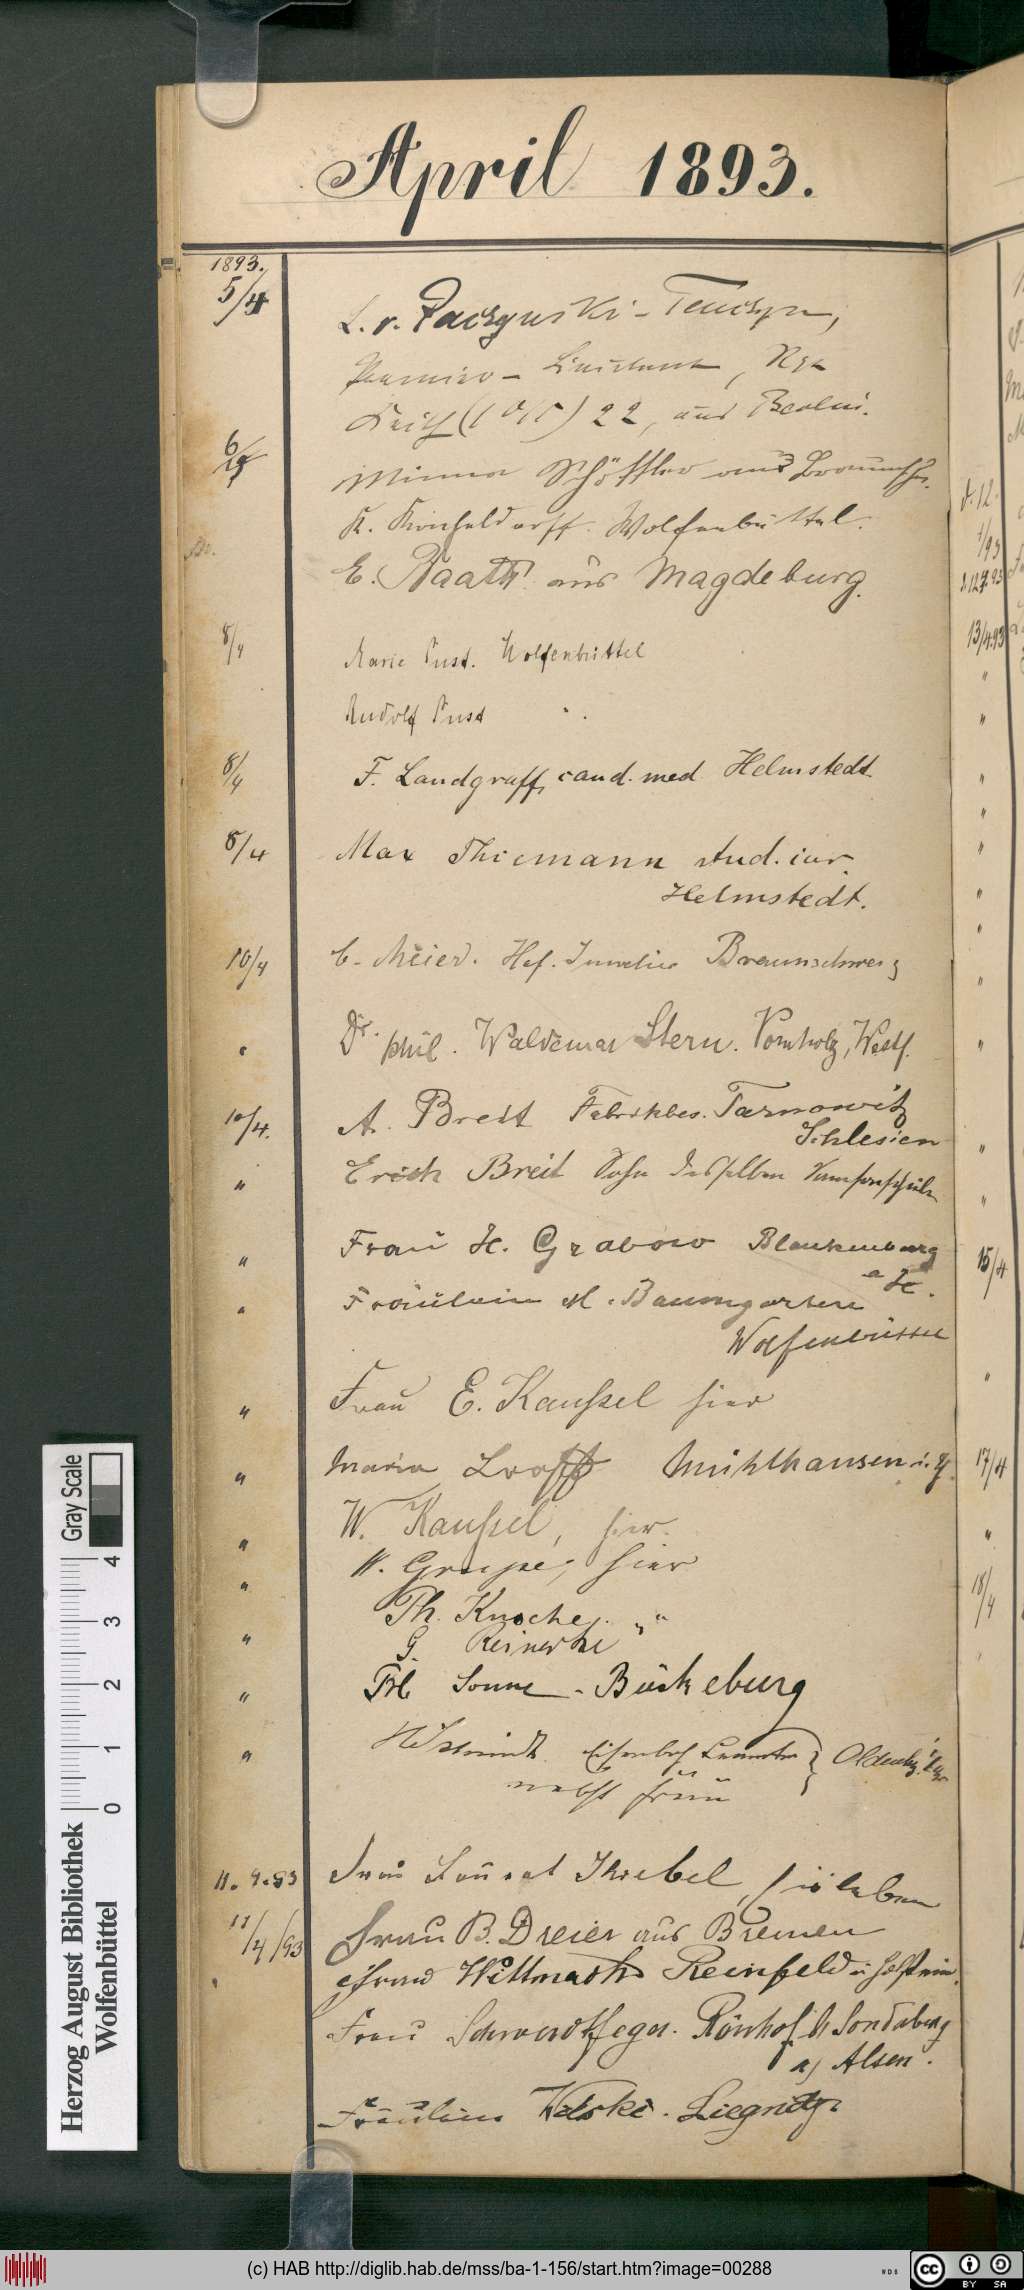 April 1893.
1893.
5/4
L. v. Paczynski-Tenczyn,
Premier-Lieutenant, Rgt
Keith (1 O/S) 22, aus
6/4
Minna Schöffler aus Braunschw.
K. Wolfenbüttel.
E. Raatz aus Magdeburg.
8/4
Marie Pust. Wolfenbüttel
Rudolf Pust " .
8/4 F. Landgraff, cand. med Helmstedt.
8/4 Max Thiemann stud. iur.
Helmstedt.
10/4 C. Meier. Hof. Juwelier Braunschweig
" Dr. phil. Waldemar Stern. Westf.
10/4. A. Breit Fabrikbes. Tarnowitz
Schlesien
" Erich Breit Sohn desselben
" Frau H. Grabow Blankenburg
a H.
" Fräulein M. Baumgarten
Wolfenbüttel
" Frau E. Kaußel hier
" Maria Looff Mühlhausen i. Th.
" W. Kaußel, hier.
" W. Graupe, hier
" Th. Knoche. " "
G. Reinecke
" Frl. Sonne - Bückeburg
" H. Schmidt Eisenbahn Oldenbg.
nebst Frau
11. 4. 93 Frau Thiebel,
11/4/93 Frau B. Dreier aus Bremen
" Frau Wittmack Reinfeld in Holstein.
Frau Schwerdtfeger. Rönhof b Sonderburg
a/ Alsen.
Fräulein Liegnitz
d. 12.
4/93
d. 12.4.93
13/4.93
"
"
"
"
"
"
"
"
"
"
"
15/4
"
17/4
"
18/4
Gray Scale
4
3
2
1
0
Herzog August Bibliothek
Wolfenbüttel
(c) HAB http://diglib.hab.de/mss/ba-1-156/start.htm?image=00288
WDB
cc
BY SA